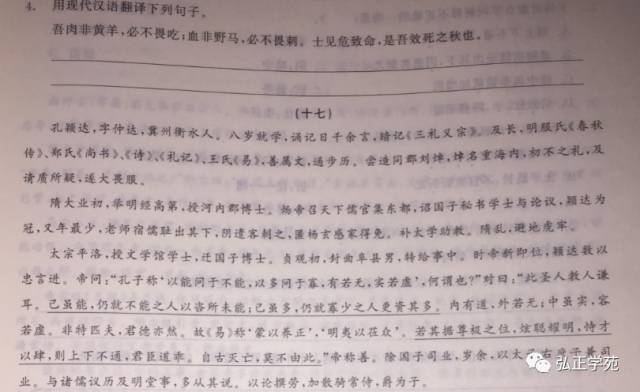 4. 用现代汉语翻译下列句子。
吾肉非黄羊,必不畏吃;血非野马,必不畏刺。士见危致命,是吾效死之秋也。
(十七)
孔颖达,字仲达,冀州衡水人。八岁就学,诵记日千余言,暗记《三礼义宗》。及长,明服氏《春秋
传》、郑氏《尚书》、《诗》、《礼记》、王氏《易》,善属文,通步历。尝造同郡刘焯,焯名重海内,初不之礼,及
请质所疑,遂大畏服。
隋大业初,举明经高第,授河内郡博士。炀帝召天下儒官集东都,诏国子秘书学士与论议,颖达为
冠,又年最少,老师宿儒耻出其下,阴遣客刺之,匿杨玄感家得免。补太学助教。隋乱,避地虎牢。
太宗平洛,授文学馆学士,迁国子博士。贞观初,封曲阜县男,转给事中。时帝新即位,颖达数以
忠言进。帝问:“孔子称‘以能问于不能,以多问于寡,有若无,实若虚’,何谓也?”对曰:“此圣人教人谦
耳。己虽能,仍就不能之人以咨所未能;己虽多,仍就寡少之人更资其多。内有道,外若无;中虽实,容
若虚。非特匹夫,君德亦然。故《易》称‘蒙以养正’,‘明夷以莅众’。若其据尊极之位,炫聪耀明,恃才
以肆,则上下不通,君臣道乖。自古灭亡,莫不由此。”帝称善。除国子司业,岁余,以太子右庶子兼司
业。与诸儒议历及明堂事,多从其说。以论撰劳,加散骑常侍,爵为子。
弘正学苑